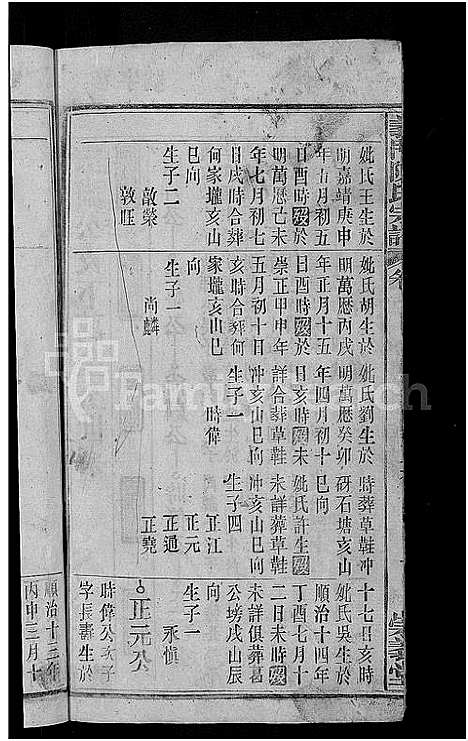 義門陳氏宗譜
卷
妣氏王生於
明嘉靖庚申
年五月初五
日酉時歿於
明萬厯己未
年七月初七
日戌時合葬
何家壠亥山
巳向
生子二
敦榮
敦旺
妣氏胡生於
明萬厯丙戌
年正月十五
日酉時歿於
崇正甲申年
五月初十日
亥時合葬何
家壠亥山巳
向
生子一
尚麟
妣氏劉生於
明萬厯癸卯
年四月初十
日亥時歿未
詳合葬草鞋
冲亥山巳向
生子一
時偉
時葬草鞋冲
石塘亥山
巳向
妣氏許生歿
未詳葬草鞋
冲亥山巳向
生子四
正江
正元
正通
正堯
十七日亥時
妣氏吳生於
順治十四年
丁酉七月十
二日未時歿
未詳俱葬葛
公塝戌山辰
向
生子一
永慎
正元公
時偉公次子
字長壽生於
順治十三年
丙申三月十
FamilySearch